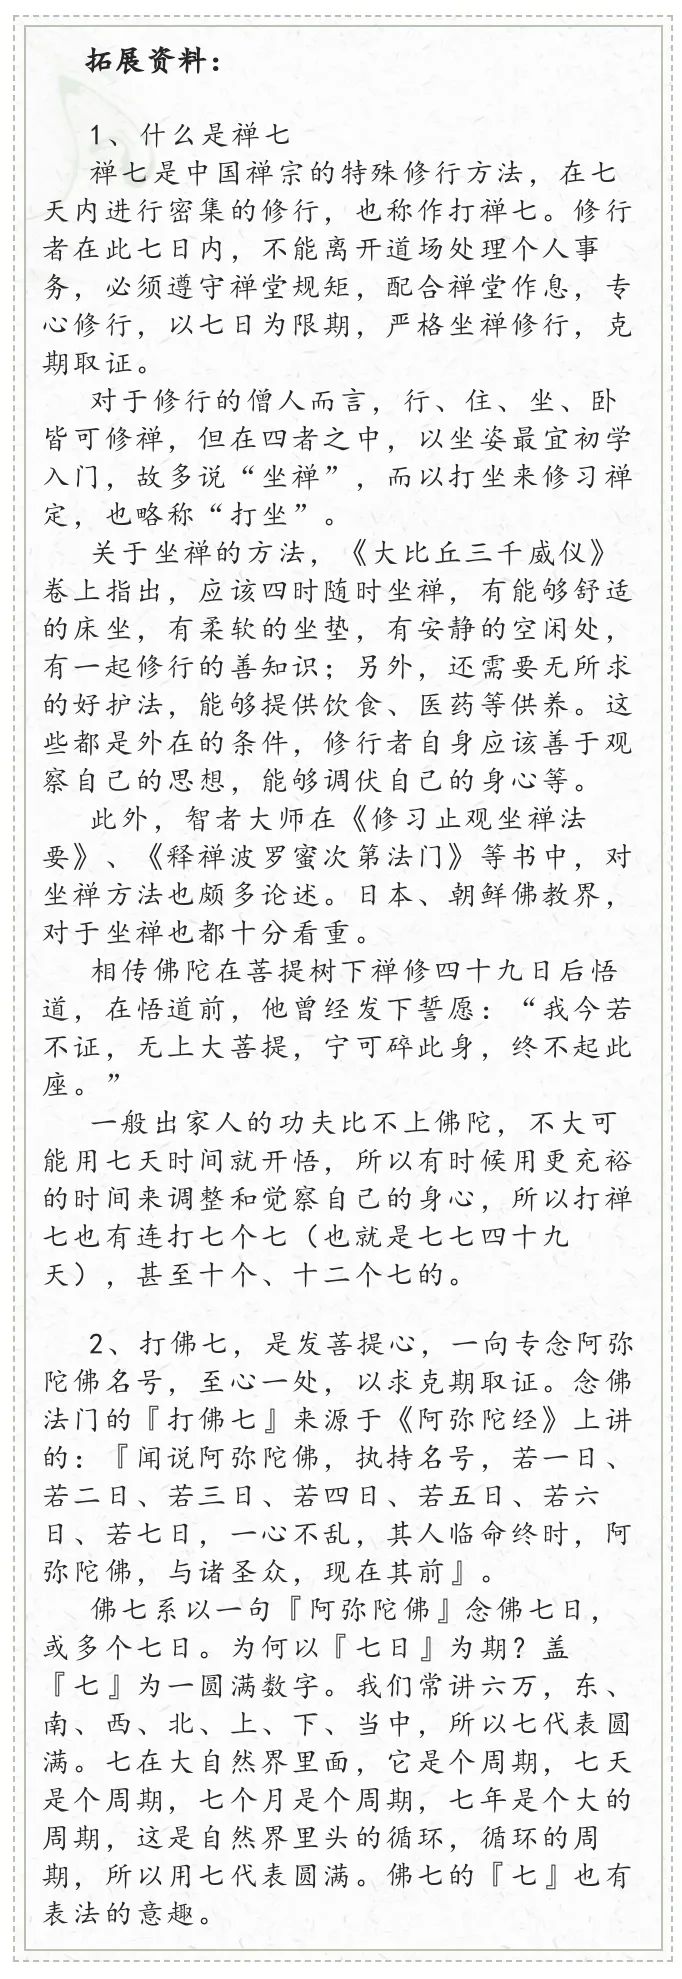 拓展资料：
1、什么是禅七
禅七是中国禅宗的特殊修行方法，在七
天内进行密集的修行，也称作打禅七。修行
者在此七日内，不能离开道场处理个人事
务，必须遵守禅堂规矩，配合禅堂作息，专
心修行，以七日为限期，严格坐禅修行，克
期取证。
对于修行的僧人而言，行、住、坐、卧
皆可修禅，但在四者之中，以坐姿最宜初学
入门，故多说“坐禅”，而以打坐来修习禅
定，也略称“打坐”。
关于坐禅的方法，《大比丘三千威仪》
卷上指出，应该四时随时坐禅，有能够舒适
的床坐，有柔软的坐垫，有安静的空闲处，
有一起修行的善知识；另外，还需要无所求
的好护法，能够提供饮食、医药等供养。这
些都是外在的条件，修行者自身应该善于观
察自己的思想，能够调伏自己的身心等。
此外，智者大师在《修习止观坐禅法
要》、《释禅波罗蜜次第法门》等书中，对
坐禅方法也颇多论述。日本、朝鲜佛教界，
对于坐禅也都十分看重。
相传佛陀在菩提树下禅修四十九日后悟
道，在悟道前，他曾经发下誓愿：“我今若
不证，无上大菩提，宁可碎此身，终不起此
座。”
一般出家人的功夫比不上佛陀，不大可
能用七天时间就开悟，所以有时候用更充裕
的时间来调整和觉察自己的身心，所以打禅
七也有连打七个七（也就是七七四十九
天），甚至十个、十二个七的。
2、打佛七，是发菩提心，一向专念阿弥
陀佛名号，至心一处，以求克期取证。念佛
法门的『打佛七』来源于《阿弥陀经》上讲
的：『闻说阿弥陀佛，执持名号，若一日、
若二日、若三日、若四日、若五日、若六
日、若七日，一心不乱，其人临命终时，阿
弥陀佛，与诸圣众，现在其前』。
佛七系以一句『阿弥陀佛』念佛七日，
或多个七日。为何以『七日』为期？盖
『七』为一圆满数字。我们常讲六万，东、
南、西、北、上、下、当中，所以七代表圆
满。七在大自然界里面，它是个周期，七天
是个周期，七个月是个周期，七年是个大的
周期，这是自然界里头的循环，循环的周
期，所以用七代表圆满。佛七的『七』也有
表法的意趣。